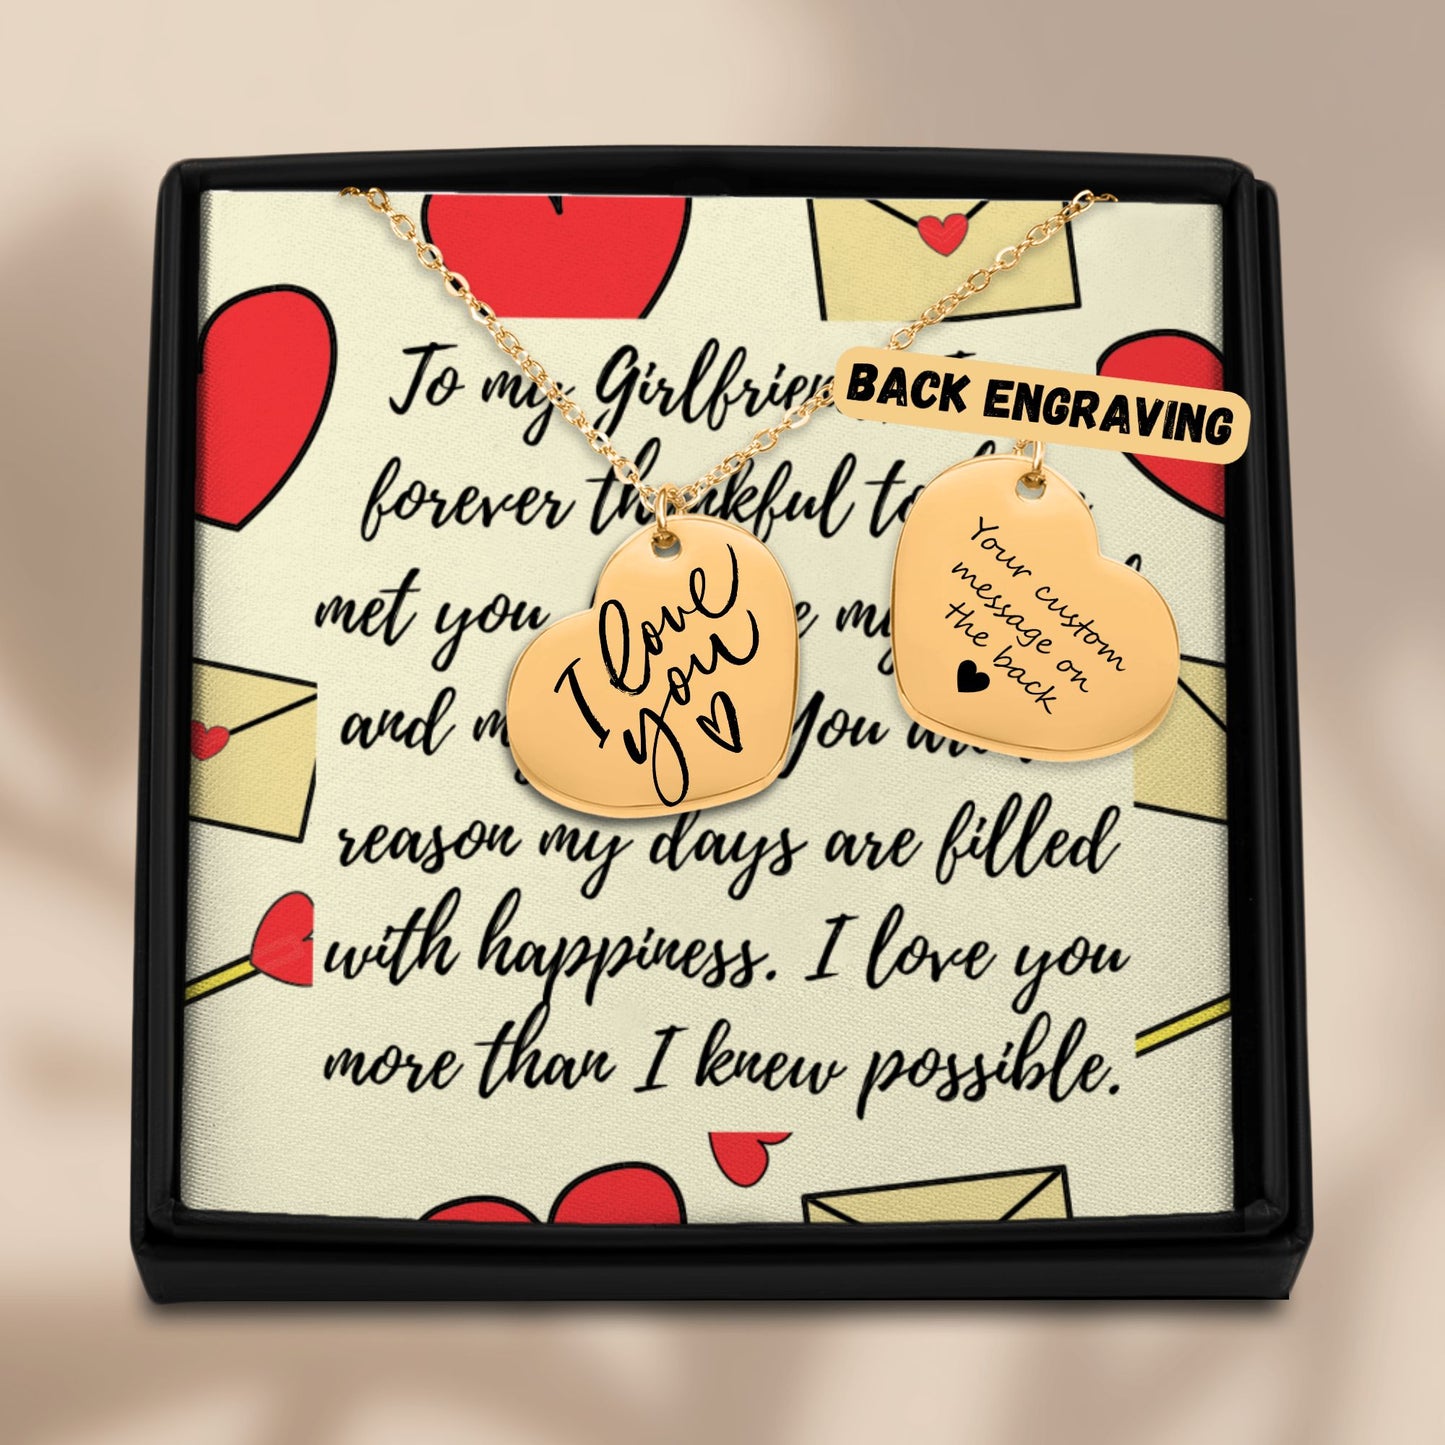 To my
forever to
met you
and You
reason my days are filled
with happiness. I love you
more than I knew possible.
I love
you
BACK ENGRAVING
Your custom
message on
the back